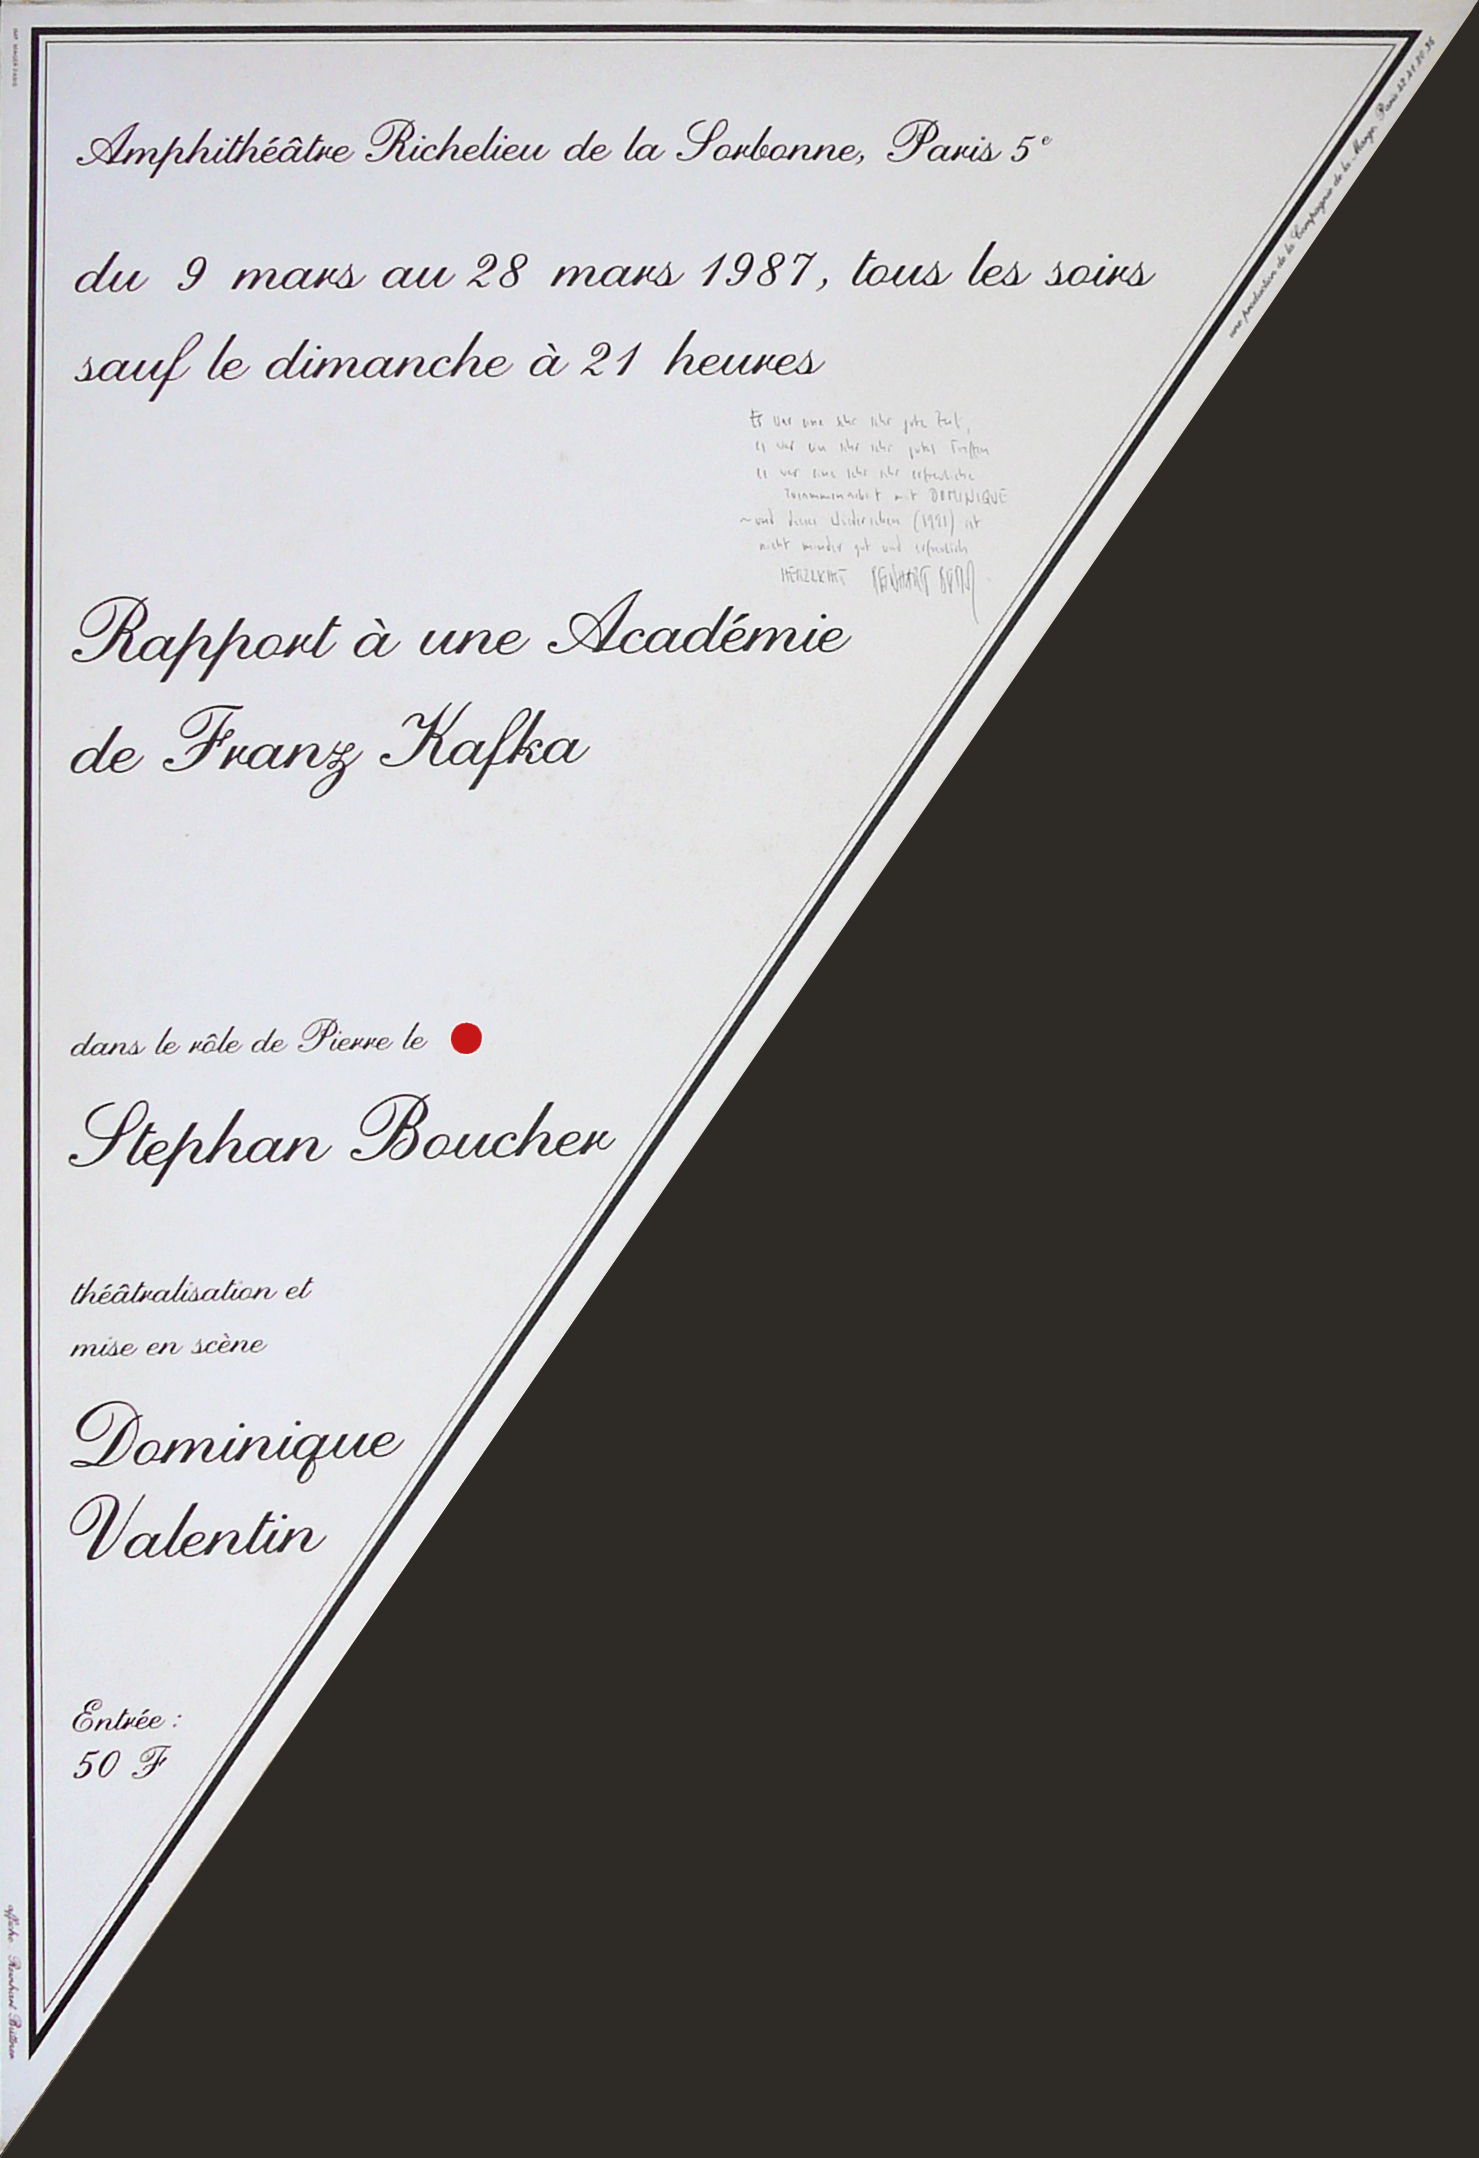 Amphithéâtre Richelieu de la Sorbonne, Paris 5e
du 9 mars au 28 mars 1987, tous les soirs
sauf le dimanche à 21 heures
Es war eine sehr sehr gute Zeit,
es war ein sehr sehr gutes Treffen
es war eine sehr sehr erfreuliche
Zusammenarbeit mit DOMINIQUE
~ und dieses Wiedersehen (1991) ist
nicht minder gut und erfreulich
REINHART
Rapport à une Académie
de Franz Kafka
dans le rôle de Pierre le
Stephan Boucher
théâtralisation et
mise en scène
Dominique
Valentin
Entrée :
50 F
une production de la Compagnie de la Marge, Paris
affiche : Reinhart Büttner